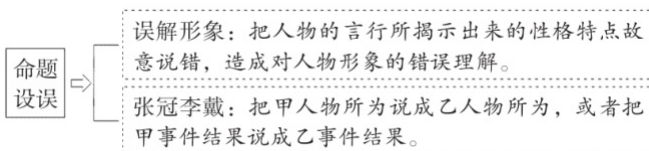 命题
设误
误解形象：把人物的言行所揭示出来的性格特点故
意说错，造成对人物形象的错误理解。
张冠李戴：把甲人物所为说成乙人物所为，或者把
甲事件结果说成乙事件结果。